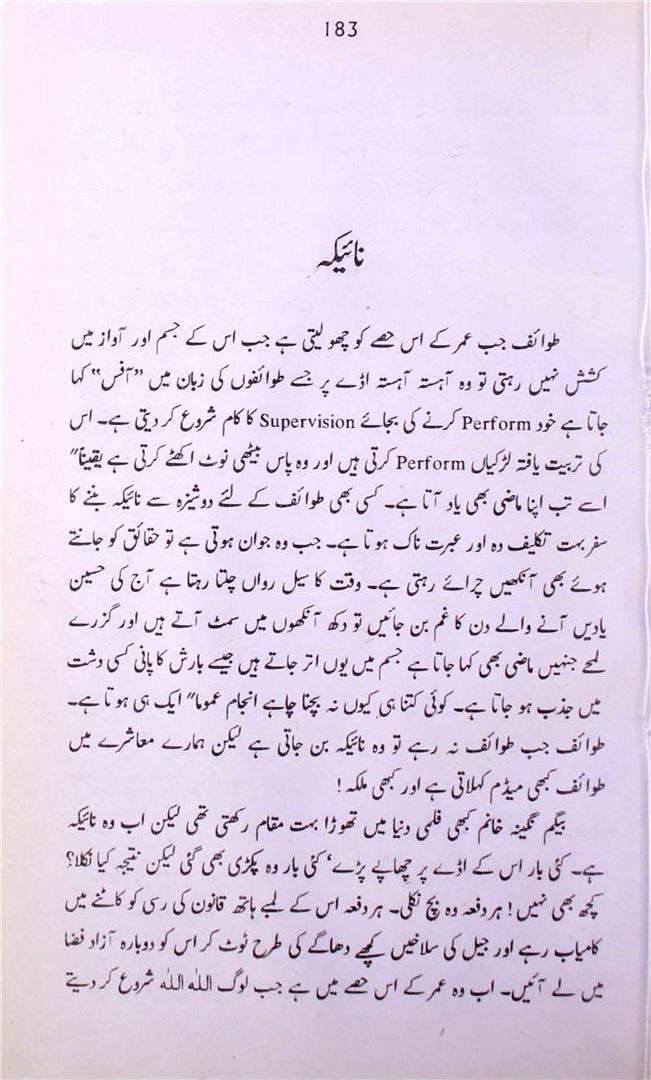 183
نائیکہ
طوائف جب عمر کے اس حصے کو چھو لیتی ہے جب اس کے جسم اور آواز میں
کشش نہیں رہتی تو وہ آہستہ آہستہ اڈے پر جسے طوائفوں کی زبان میں ”آفس“ کہا
جاتا ہے خود Perform کرنے کی بجائے Supervision کا کام شروع کر دیتی ہے۔ اس
کی تربیت یافتہ لڑکیاں Perform کرتی ہیں اور وہ پاس بیٹھی نوٹ اکٹھے کرتی ہے یقیناً"
اسے تب اپنا ماضی بھی یاد آتا ہے۔ کسی بھی طوائف کے لئے دوشیزہ سے نائیکہ بننے کا
سفر بہت تکلیف دہ اور عبرت ناک ہوتا ہے۔ جب وہ جوان ہوتی ہے تو حقائق کو جانتے
ہوئے بھی آنکھیں چرائے رہتی ہے۔ وقت کا سیل رواں چلتا رہتا ہے آج کی حسین
یادیں آنے والے دن کا غم بن جائیں تو دکھ آنکھوں میں سمٹ آتے ہیں اور گزرے
لمحے جنہیں ماضی بھی کہا جاتا ہے جسم میں یوں اتر جاتے ہیں جیسے بارش کا پانی کسی دشت
میں جذب ہو جاتا ہے۔ کوئی کتنا ہی کیوں نہ بچنا چاہے انجام عموما" ایک ہی ہوتا ہے۔
طوائف جب طوائف نہ رہے تو وہ نائیکہ بن جاتی ہے لیکن ہمارے معاشرے میں
طوائف کبھی میڈم کہلاتی ہے اور کبھی ملکہ!
بیگم نگینہ خانم کبھی فلمی دنیا میں تھوڑا بہت مقام رکھتی تھی لیکن اب وہ نائیکہ
ہے۔ کئی بار اس کے اڈے پر چھاپے پڑے‘ کئی بار وہ پکڑی بھی گئی لیکن نتیجہ کیا نکلا؟
کچھ بھی نہیں! ہر دفعہ وہ بچ نکلی۔ ہر دفعہ اس کے لمبے ہاتھ قانون کی رسی کو کاٹنے میں
کامیاب رہے اور جیل کی سلاخیں کچے دھاگے کی طرح ٹوٹ کر اس کو دوبارہ آزاد فضا
میں لے آئیں۔ اب وہ عمر کے اس حصے میں ہے جب لوگ اللہ اللہ شروع کر دیتے